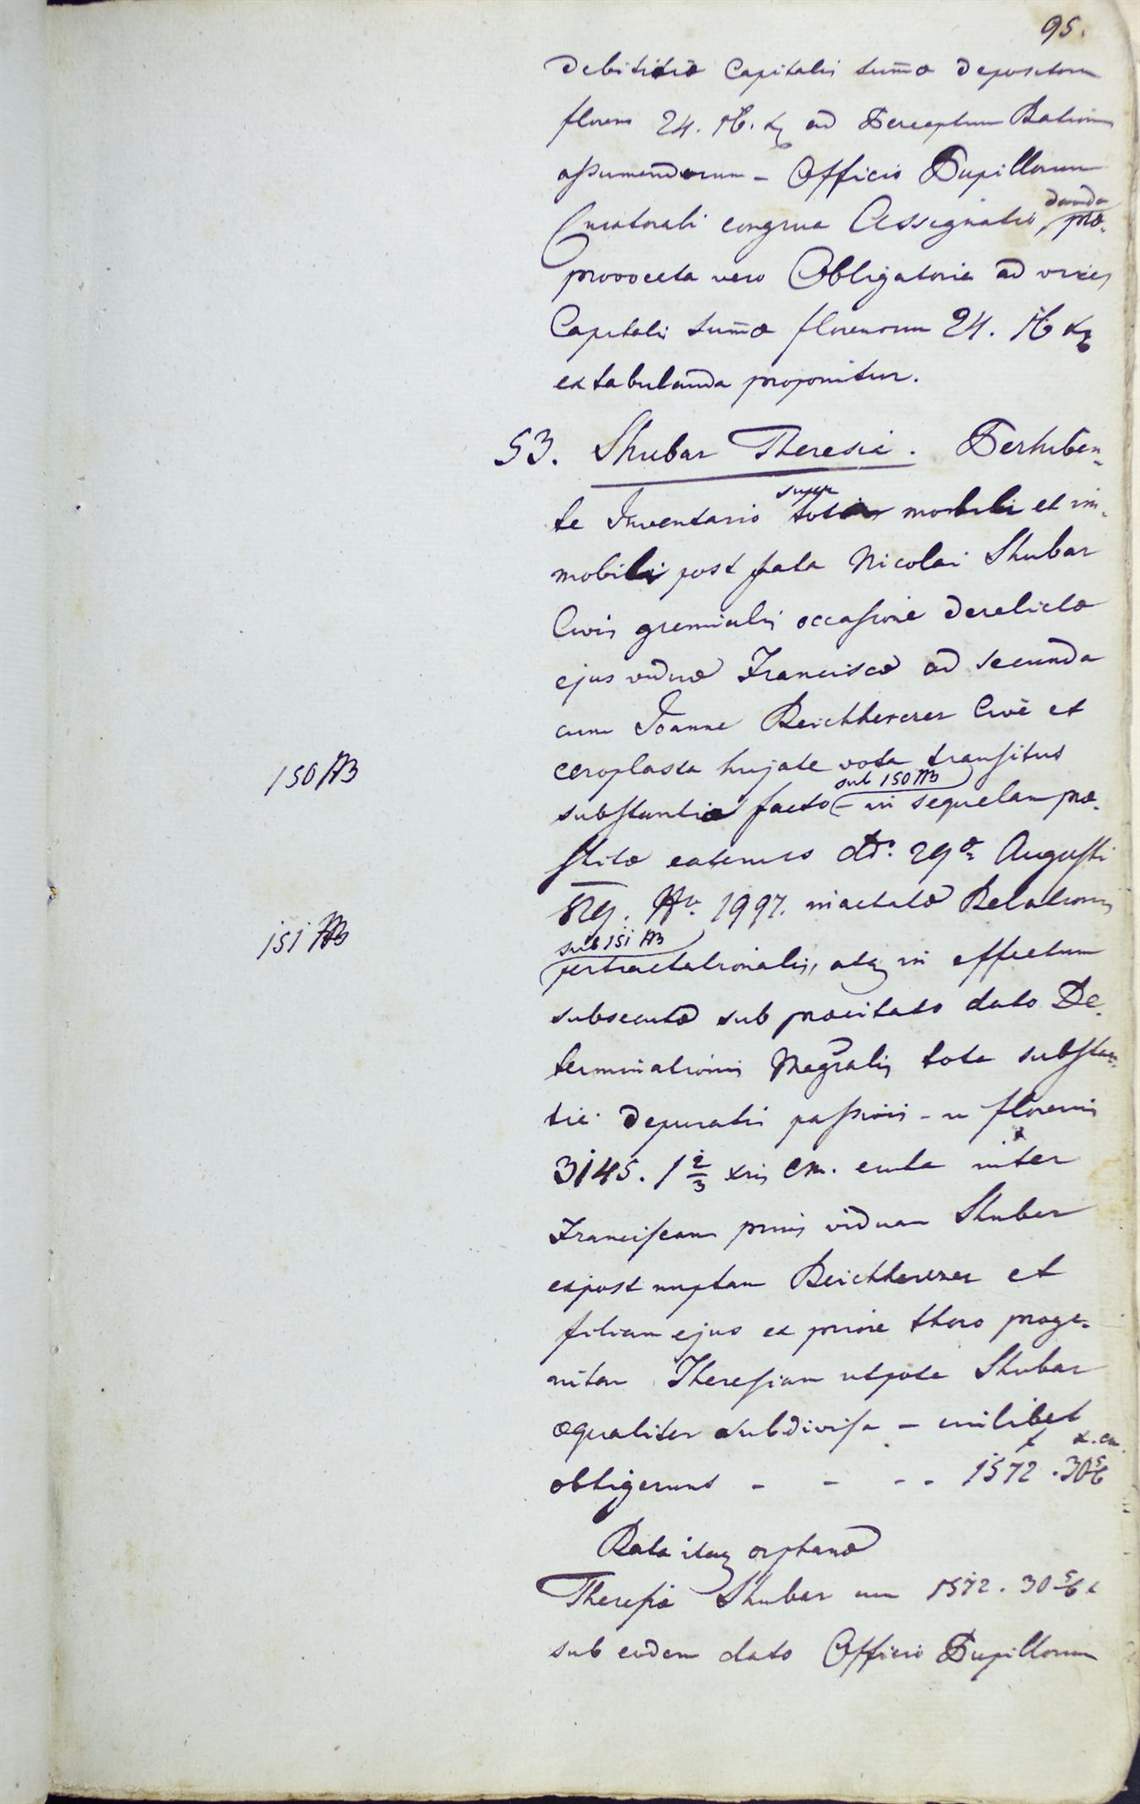 95.
debititiæ Capitalis sum̄æ depositorum
floren 24. 16. x ad Perceptum Rationum
assumendorum - Officio Pupillorum
danda
Curatorali congrua Assignatio, præ-
provocata vero Obligatoria ad vires
Capitalis sum̄æ florenorum 24. 16 x
extabulanda proponitur.
53. Shubar Theresia. Perhiben-
super
te Inventario mobili et im-
mobili post fata Nicolai Shubar
Civis gremialis occasione derelictæ
ejus viduæ Franciscæ ad secunda
cum Joanne Civē et
ceroplasta hujate vota transitus
sub 150 AB
150 AB
substantiæ facto - in sequelam præ-
stitæ eatenus dto. 29a Augusti
829. No. 1997. mactatæ Relationis
sub 151 AB
151 AB
pertractationalis, atq in effectum
subsecutæ sub præcitato dato De-
terminationis Magralis tota substan-
tia depuratis passivis - in florenis
3145. 1 2/3 xris CM. inter
Franciscam prius viduam Shubar
expost nuptam et
filiam ejus ex priore thoro proge-
nitam Theresiam utpote Shubar
æqualiter subdivisa - cuilibet
f x. cm.
obtigerunt - - - - 1572 . 30 5/6
Rata itaq orphanæ
Theresiæ Shubar cum 1572. 30 5/6 x
sub eodem dato Officio Pupillorum